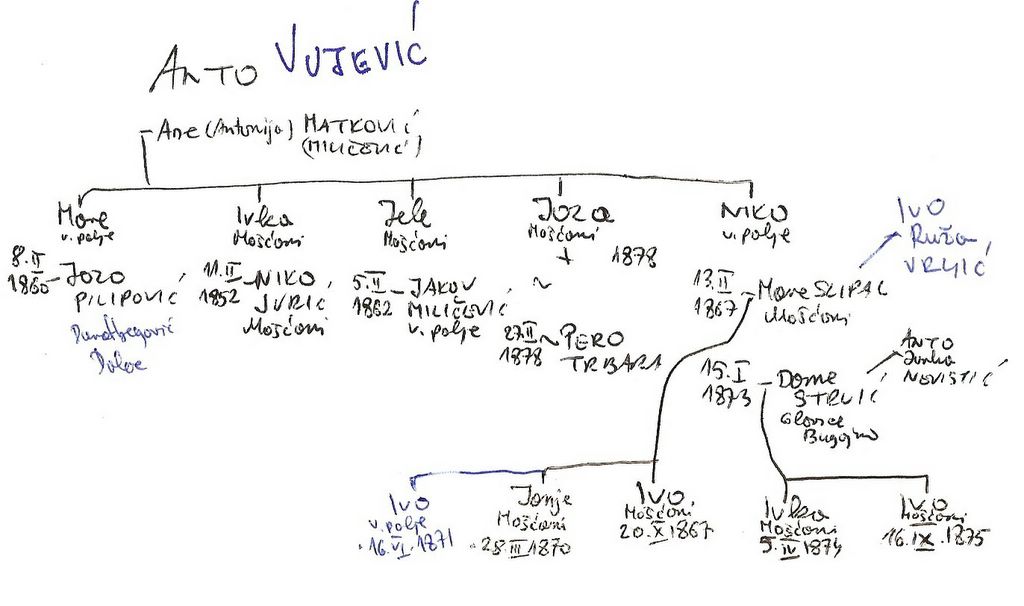 ANTO VUJEVIĆ
Ane (Antonija) MATKOVIĆ
(MILIČEVIĆ)
Mare
v. polje
8.II
1860 - JOZO
PILIPOVIĆ
Doloc
Ivka
Mošćani
11.II
1852 - NIKO
JURIĆ
Mošćani
Jele
Mošćani
5.II
1862 - JAKOV
MILIČEVIĆ
v. polje
Joza
Mošćani
+ 1878
~
27.II
1878 ~ PERO
TRBARA
NIKO
v. polje
13.II
1867 - Mare SLIPAC
Mošćani
IVO
Ruža
VRLJIĆ
15.I
1873 - Dome
STRUIĆ
Glavice
Bugojno
ANTO
Ivka
NEVISTIĆ
Ivo
v. polje
16.VI.1871
Janje
Mošćani
28.III 1870
Ivo
Mošćani
20.X 1867
Ivka
Mošćani
5.IV 1874
Ivo
Mošćani
16.IX.1875